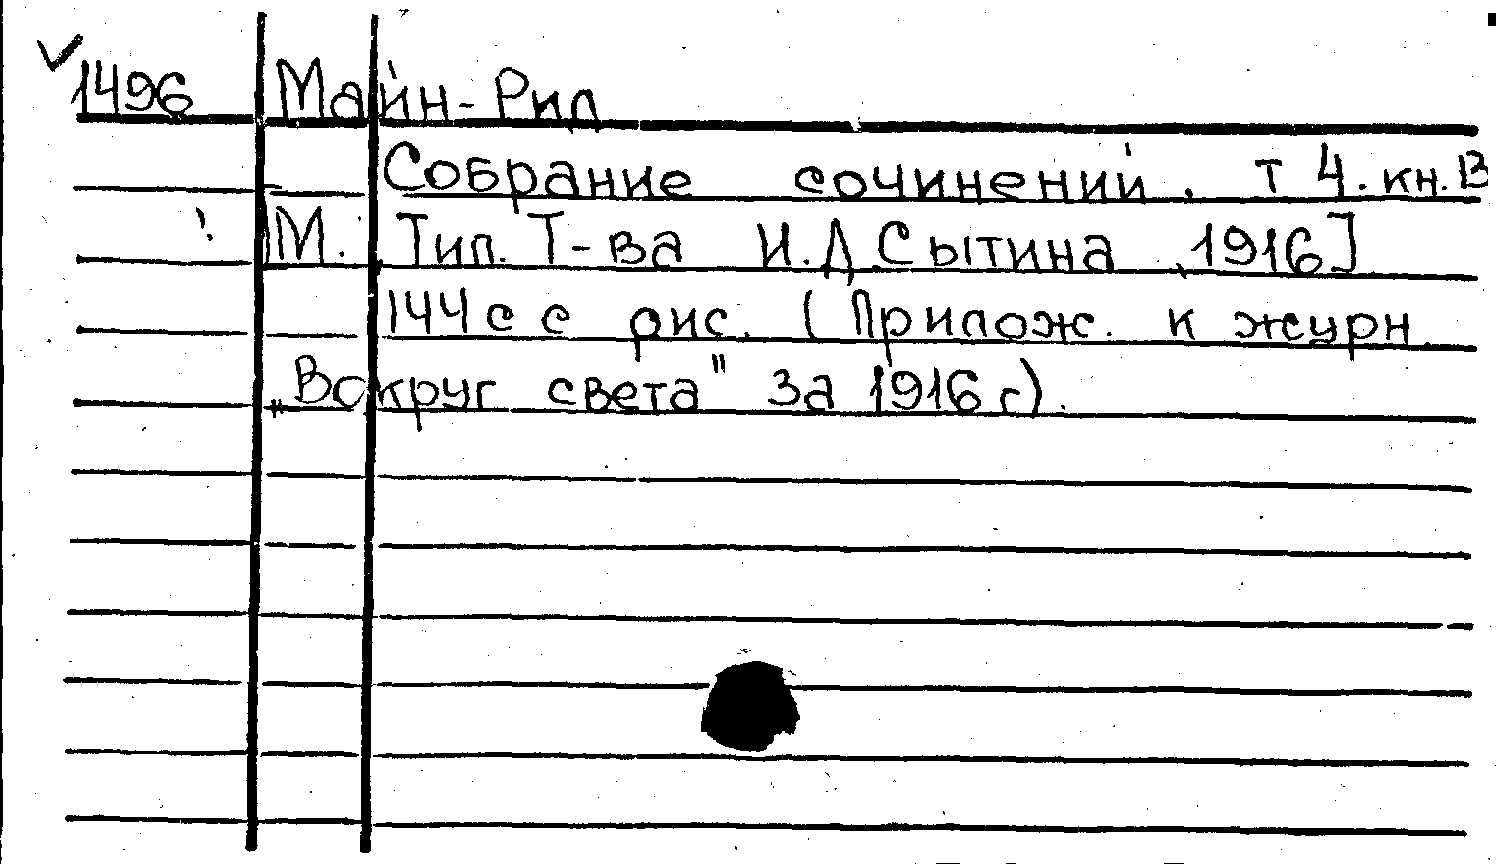 1496 Майн-Рид
Собрание сочинений, т 4. кн. 13
[М. Тип. Т-ва И.Д.Сытина, 1916]
144 с с рис. (Прилож. к журн.
„Вокруг света" за 1916 г).